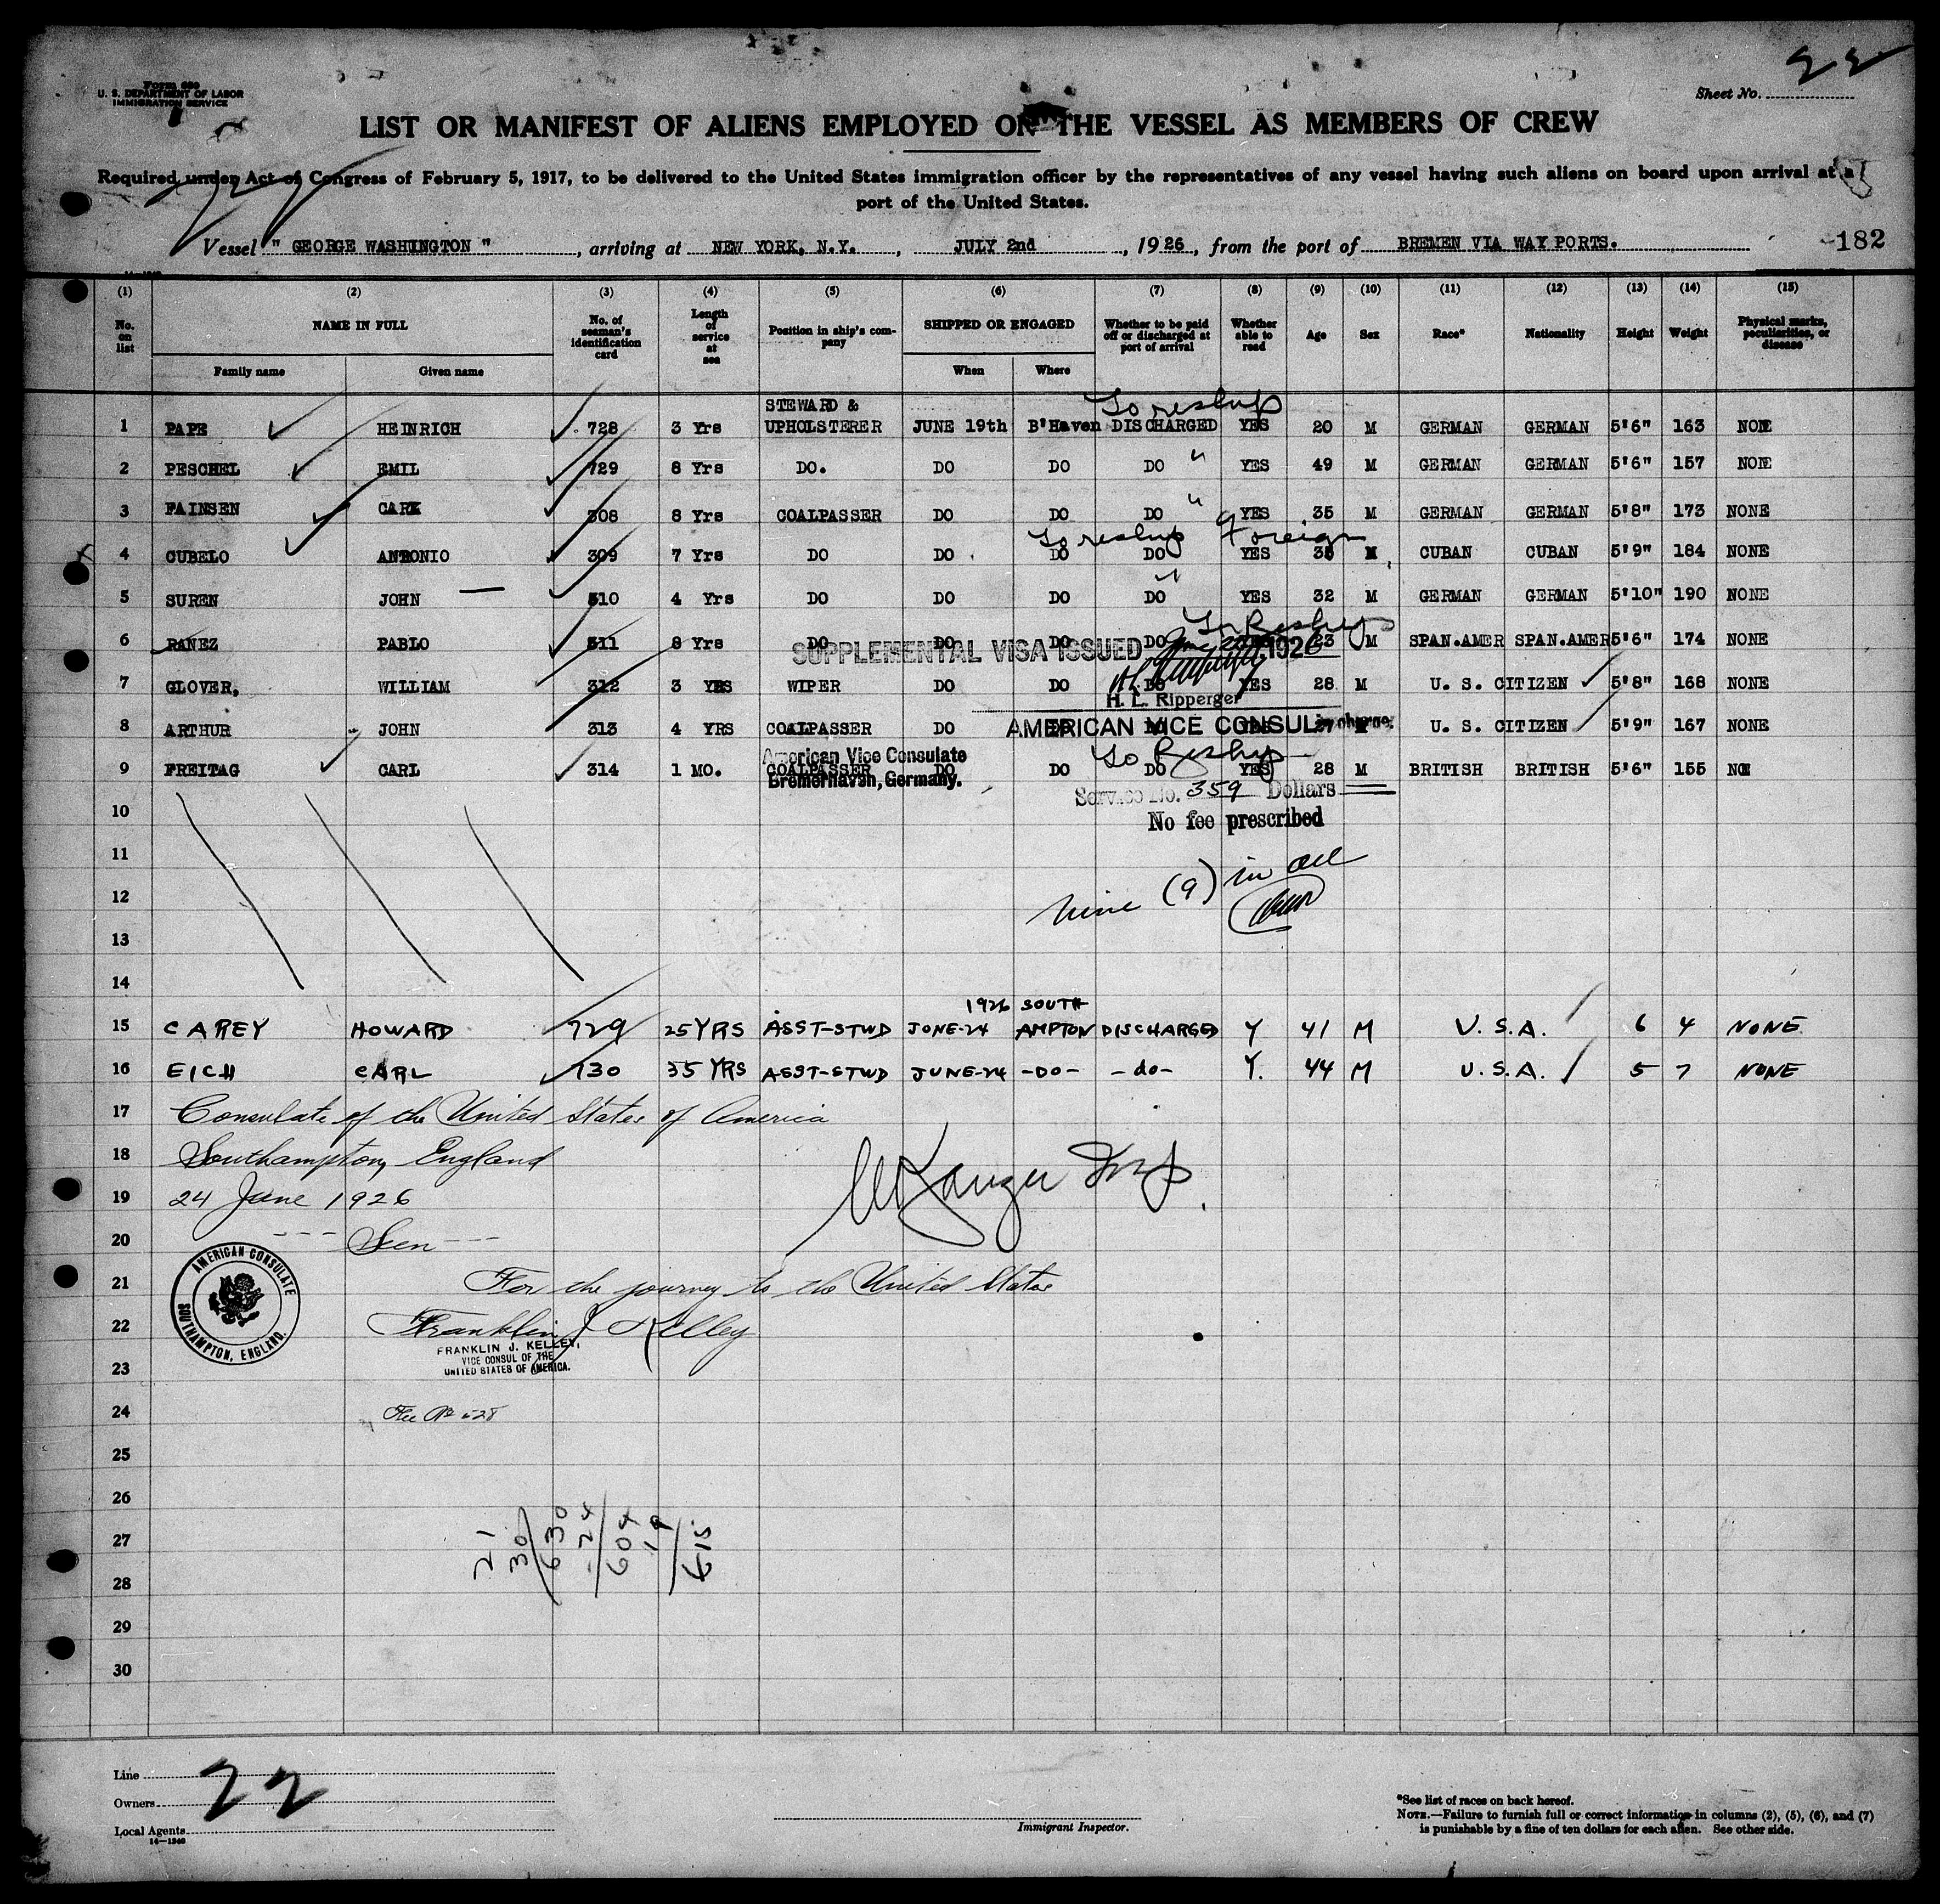 Form 680
U. S. DEPARTMENT OF LABOR
IMMIGRATION SERVICE
22
Sheet No.
LIST OR MANIFEST OF ALIENS EMPLOYED ON THE VESSEL AS MEMBERS OF CREW
Required under Act of Congress of February 5, 1917, to be delivered to the United States immigration officer by the representatives of any vessel having such aliens on board upon arrival at a
port of the United States.
Vessel " GEORGE WASHINGTON ", arriving at NEW YORK, N.Y., JULY 2nd, 1926, from the port of BREMEN VIA WAY PORTS.
182
(1) (2) (3) (4) (5) (6) (7) (8) (9) (10) (11) (12) (13) (14) (15)
No. on list NAME IN FULL No. of seaman's identification card Length of service at sea Position in ship's company SHIPPED OR ENGAGED Whether to be paid off or discharged at port of arrival Whether able to read Age Sex Race* Nationality Height Weight Physical marks, peculiarities, or disease
Family name Given name When Where
STEWARD & To reship
1 PAPE HEINRICH 728 3 Yrs UPHOLSTERER JUNE 19th B'Haven DISCHARGED YES 20 M GERMAN GERMAN 5'6" 163 NONE
2 PESCHEL EMIL 729 8 Yrs DO. DO DO DO " YES 49 M GERMAN GERMAN 5'6" 157 NONE
3 FAINSEN CARK 308 8 Yrs COALPASSER DO DO DO " YES 35 M GERMAN GERMAN 5'8" 173 NONE
To reship Foreign
4 CUBELO ANTONIO 309 7 Yrs DO DO DO DO YES M CUBAN CUBAN 5'9" 184 NONE
5 SUREN JOHN 310 4 Yrs DO DO DO DO YES 32 M GERMAN GERMAN 5'10" 190 NONE
To Reship
6 RANEZ PABLO 311 8 Yrs DO DO DO DO 23 M SPAN.AMER SPAN.AMER 5'6" 174 NONE
SUPPLEMENTAL VISA ISSUED 1926
7 GLOVER, WILLIAM 312 3 YRS WIPER DO DO DO YES 28 M U. S. CITIZEN 5'8" 168 NONE
H. L. Ripperger
8 ARTHUR JOHN 313 4 YRS COALPASSER DO U. S. CITIZEN 5'9" 167 NONE
AMERICAN VICE CONSUL in charge
To Reship
American Vice Consulate
9 FREITAG CARL 314 1 MO. COALPASSER DO DO DO YES 28 M BRITISH BRITISH 5'6" 155 NONE
Bremerhaven, Germany.
Service No. 359 Dollars
No fee prescribed
10
11
nine (9) in all
12
13
14
1926 SOUTH
15 CAREY HOWARD 729 25 YRS ASST-STWD JUNE-24 AMPTON DISCHARGED Y 41 M U.S.A. 6 4 NONE
16 EICH CARL 730 35 YRS ASST-STWD JUNE-24 -DO- -do- Y. 44 M U.S.A. 5 7 NONE
17 Consulate of the United States of America
18 Southampton, England
19 24 June 1926
20 --- Seen ---
AMERICAN CONSULATE
SOUTHAMPTON, ENGLAND.
21 For the journey to the United States
22 Franklin J Kelley
FRANKLIN J. KELLEY,
VICE CONSUL OF THE
23 UNITED STATES OF AMERICA.
24
25
26
27
28
29
30
21
30
630
24
604
615
Line
22
Owners
Local Agents
14—1240
Immigrant Inspector.
*See list of races on back hereof.
NOTE.—Failure to furnish full or correct information in columns (2), (5), (6), and (7)
is punishable by a fine of ten dollars for each alien. See other side.